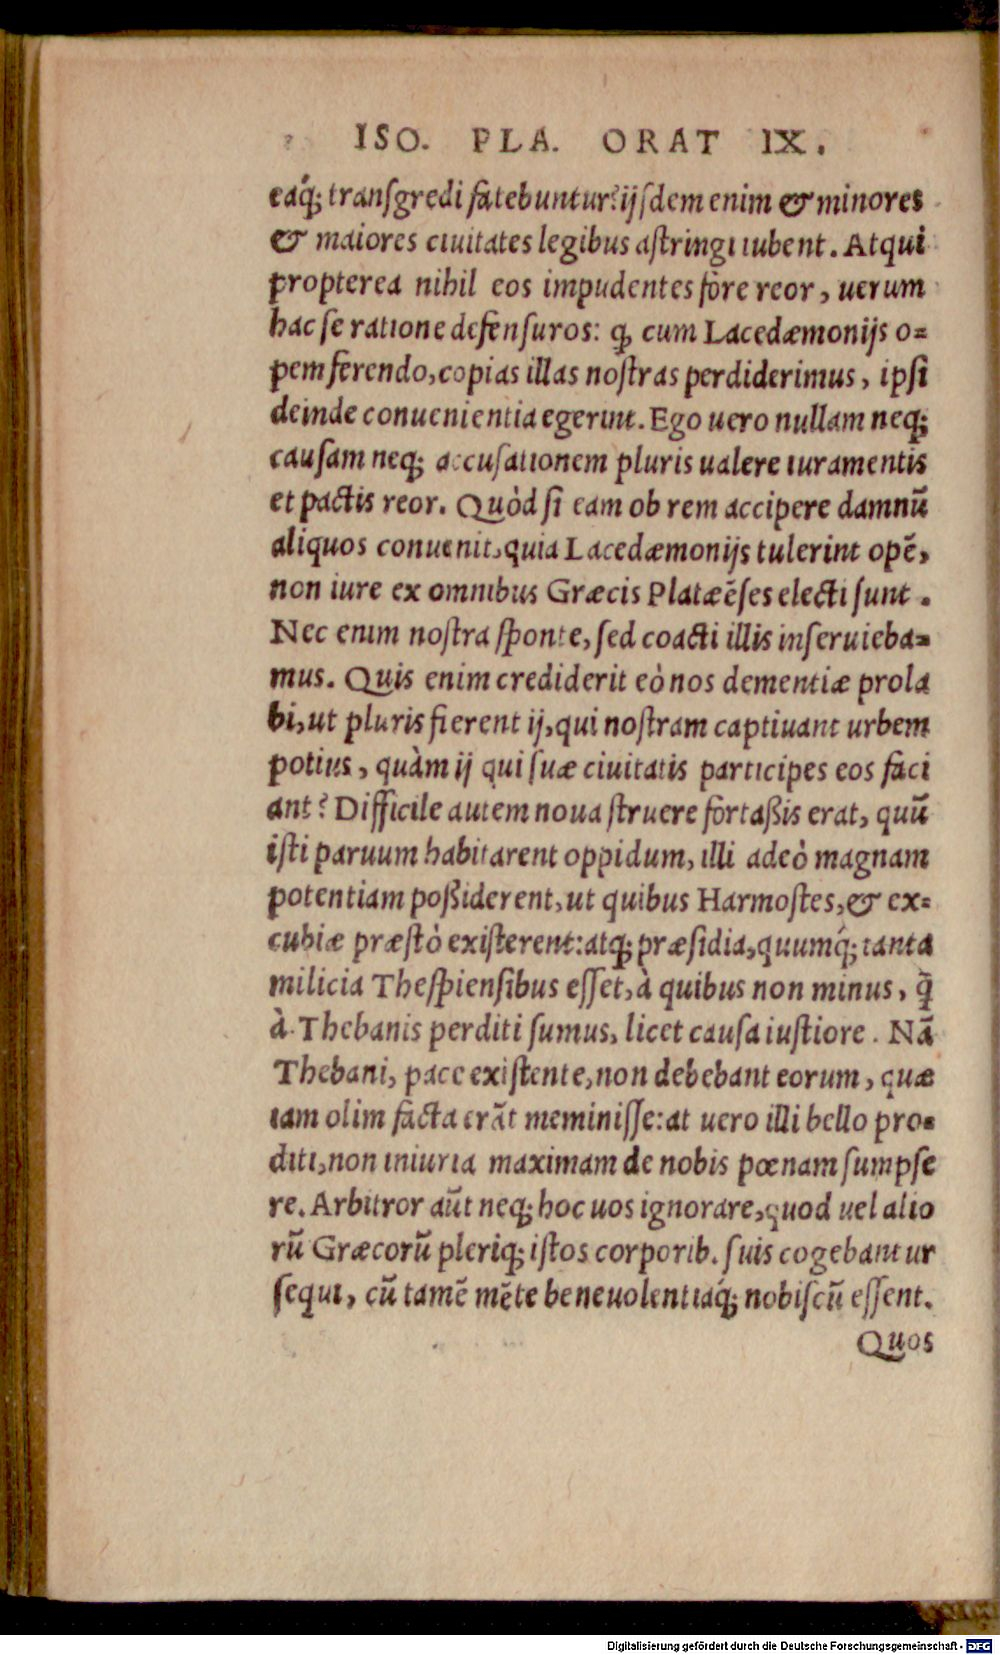 ISO. PLA. ORAT IX.
eaq́; transgredi fatebuntur? ijsdem enim & minores
& maiores ciuitates legibus astringi iubent. Atqui
propterea nihil eos impudentes fore reor, uerum
hac se ratione defensuros: q; cum Lacedæmonijs o=
pem ferendo, copias illas nostras perdiderimus, ipsi
deinde conuenientia egerint. Ego uero nullam neq;
causam neq; accusationem pluris ualere iuramentis
et pactis reor. Quòd si eam ob rem accipere damnū
aliquos conuenit, quia Lacedæmonijs tulerint opē,
non iure ex omnibus Græcis Platæēses electi sunt.
Nec enim nostra sponte, sed coacti illis inseruieba=
mus. Quis enim crediderit eò nos dementiæ prola
bi, ut pluris fierent ij, qui nostram captiuant urbem
potius, quàm ij qui suæ ciuitatis participes eos faci
ant? Difficile autem noua struere fortaßis erat, quū
isti paruum habitarent oppidum, illi adeò magnam
potentiam poßiderent, ut quibus Harmostes, & ex=
cubiæ præstò existerent: atq; præsidia, quumq́; tanta
milicia Thespiensibus esset, à quibus non minus, q̄
à Thebanis perditi sumus, licet causa iustiore. Nā
Thebani, pace existente, non debebant eorum, quæ
iam olim facta erāt meminisse: at uero illi bello pro=
diti, non iniuria maximam de nobis pœnam sumpse
re. Arbitror aūt neq; hoc uos ignorare, quod uel alio
rū Græcorū pleriq; istos corporib. suis cogebantur
sequi, cū tamē mēte beneuolentiaq́; nobiscū essent.
Quos
Digitalisierung gefördert durch die Deutsche Forschungsgemeinschaft - DFG